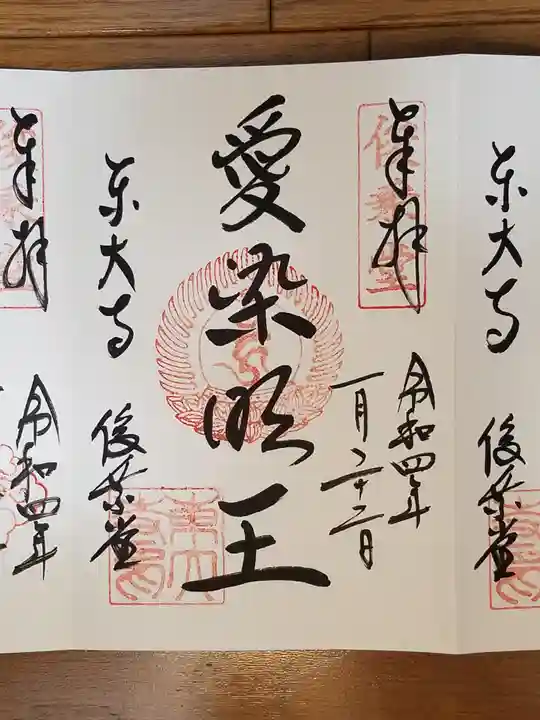 東大寺
俊乗堂
奉拝
俊乗堂
令和四年
一月二十二日
愛染明王
東大寺
俊乗堂
奉拝
令和四年